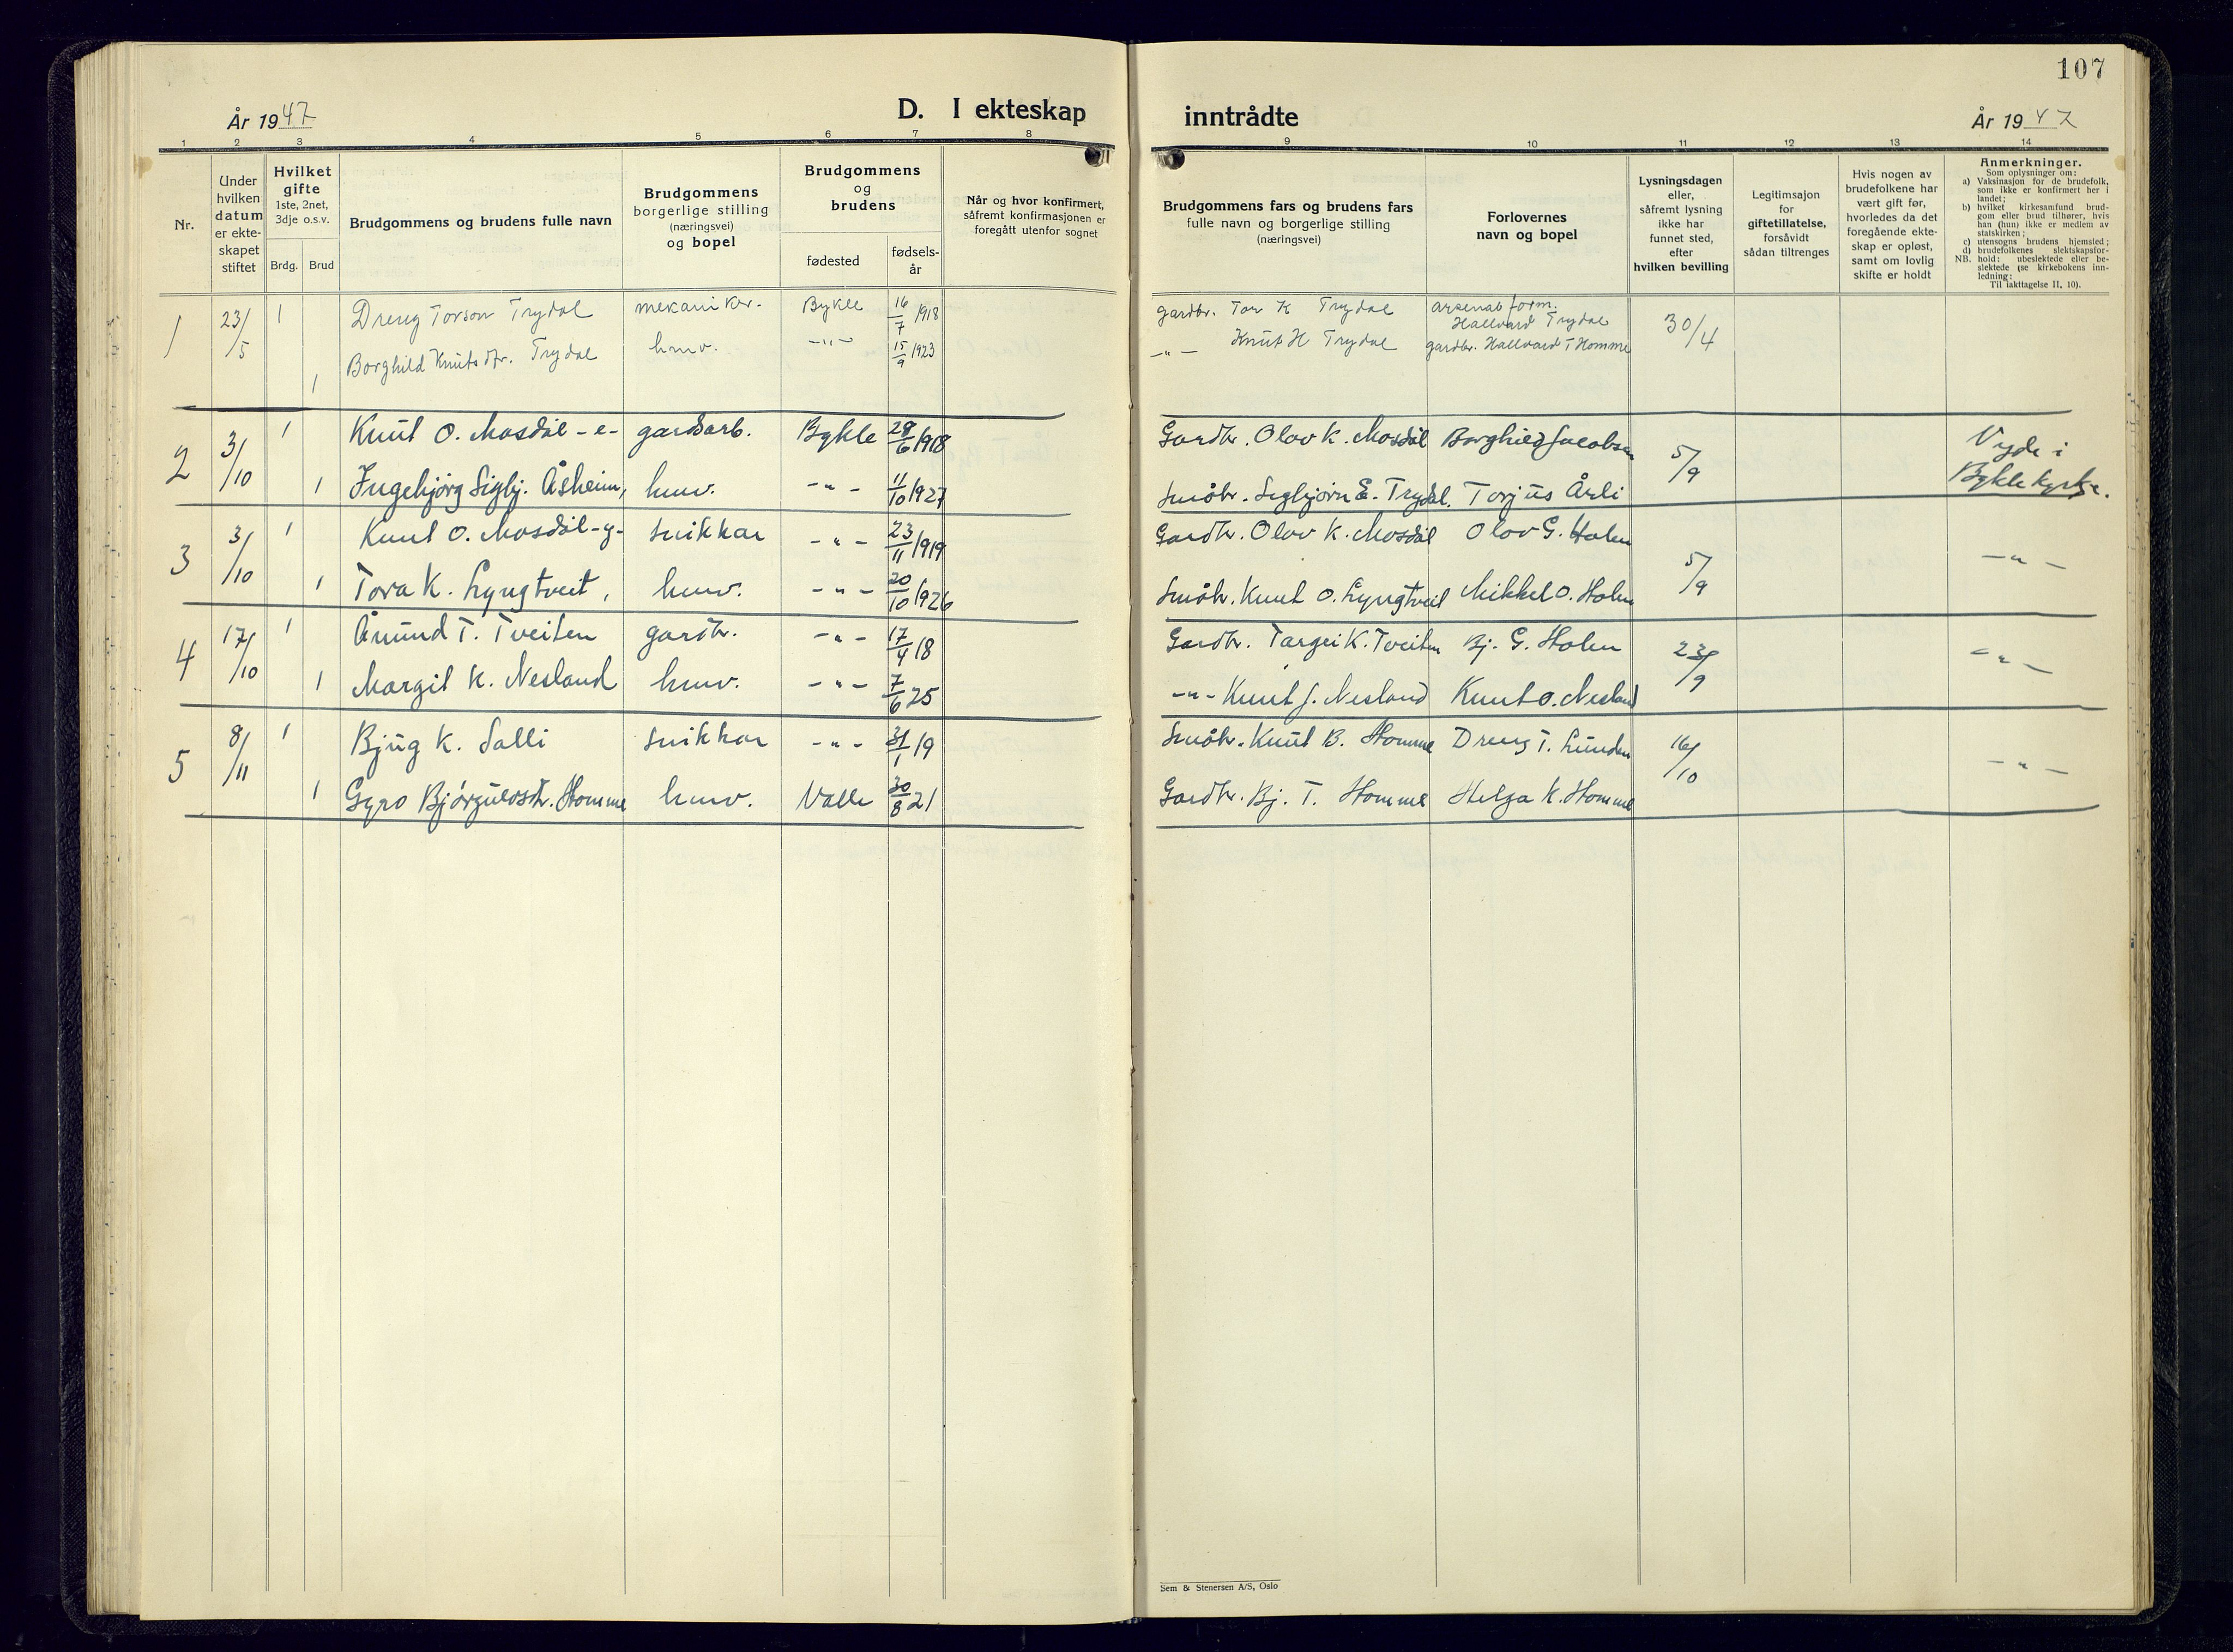 107
År 1947
D. I ekteskap
inntrådte
År 1947
1 2 3 4 5 6 7 8
9 10 11 12 13 14
Nr.
Under
hvilken
datum
er ekte-
skapet
stiftet
Hvilket
gifte
1ste, 2net,
3dje o.s.v.
Brdg.
Brud
Brudgommens og brudens fulle navn
Brudgommens
borgerlige stilling
(næringsvei)
og bopel
Brudgommens
og
brudens
fødested
fødsels-
år
Når og hvor konfirmert,
såfremt konfirmasjonen er
foregått utenfor sognet
Brudgommens fars og brudens fars
fulle navn og borgerlige stilling
(næringsvei)
Forlovernes
navn og bopel
Lysningsdagen
eller,
såfremt lysning
ikke har
funnet sted,
efter
hvilken bevilling
Legitimsajon
for
giftetillatelse,
forsåvidt
sådan tiltrenges
Hvis nogen av
brudefolkene har
vært gift før,
hvorledes da det
foregående ekte-
skap er opløst,
samt om lovlig
skifte er holdt
Anmerkninger.
Som oplysninger om:
a) Vaksinasjon for de brudefolk,
som ikke er konfirmert her i
landet;
b) hvilket kirkesamfund brud-
gom eller brud tilhører, hvis
han (hun) ikke er medlem av
statskirken;
c) utensogns brudens hjemsted;
d) brudefolkenes slektskapsfor-
hold: ubeslektede eller be-
slektede (se kirkebokens inn-
ledning:
NB.
Til iakttagelse II, 10).
1 23/5 1 Dreng Torson Trydal mekaniker. Bykle 16/7 1918 gardbr. Tor K Trydal arsenalform. Hallvard Trydal 30/4
1 Borghild Knutsdtr. Trydal husv. -"- 15/9 1923 -"- Knut H Trydal gardbr. Hallvard T Homme
2 3/10 1 Knut O. Mosdøl -e- gardsarb. Bykle 28/6 1918 Gardbr. Olav K. Mosdøl Borghild Jacobsen 5/9 Vigde i
1 Ingebjørg Sigbj. Åsheim, husv. -"- 11/10 1927 Småbr. Sigbjørn E. Trydal. Torjus Årli Bykle kyrkje.
3 3/10 1 Knut O. Mosdøl -y- snikkar -"- 23/11 1919 Gardbr. Olov K. Mosdøl Olov G. Holen 5/9 -"-
1 Tora K. Lyngtveit, husv. -"- 20/10 1926 Småbr. Knut O. Lyngtveit Mikkel O. Holen
4 17/10 1 Ånund T. Tveiten gardbr. -"- 17/4 18 Gardbr. Targei K. Tveiten Bj. G. Holen 23/9 -"-
1 Margit K. Nesland husv. -"- 7/6 25 -"- Knut J. Nesland Knut O. Nesland
5 8/11 1 Bjug K. Salli snikkar -"- 31/1 19 Småbr. Knut B. Homme Dreng T. Lunden 16/10 -"-
1 Gyro Bjørgulvsdtr. Homme husv. Valle 30/8 21 Gardbr. Bj. T. Homme Helga K. Homme
Sem & Stenersen A/S, Oslo